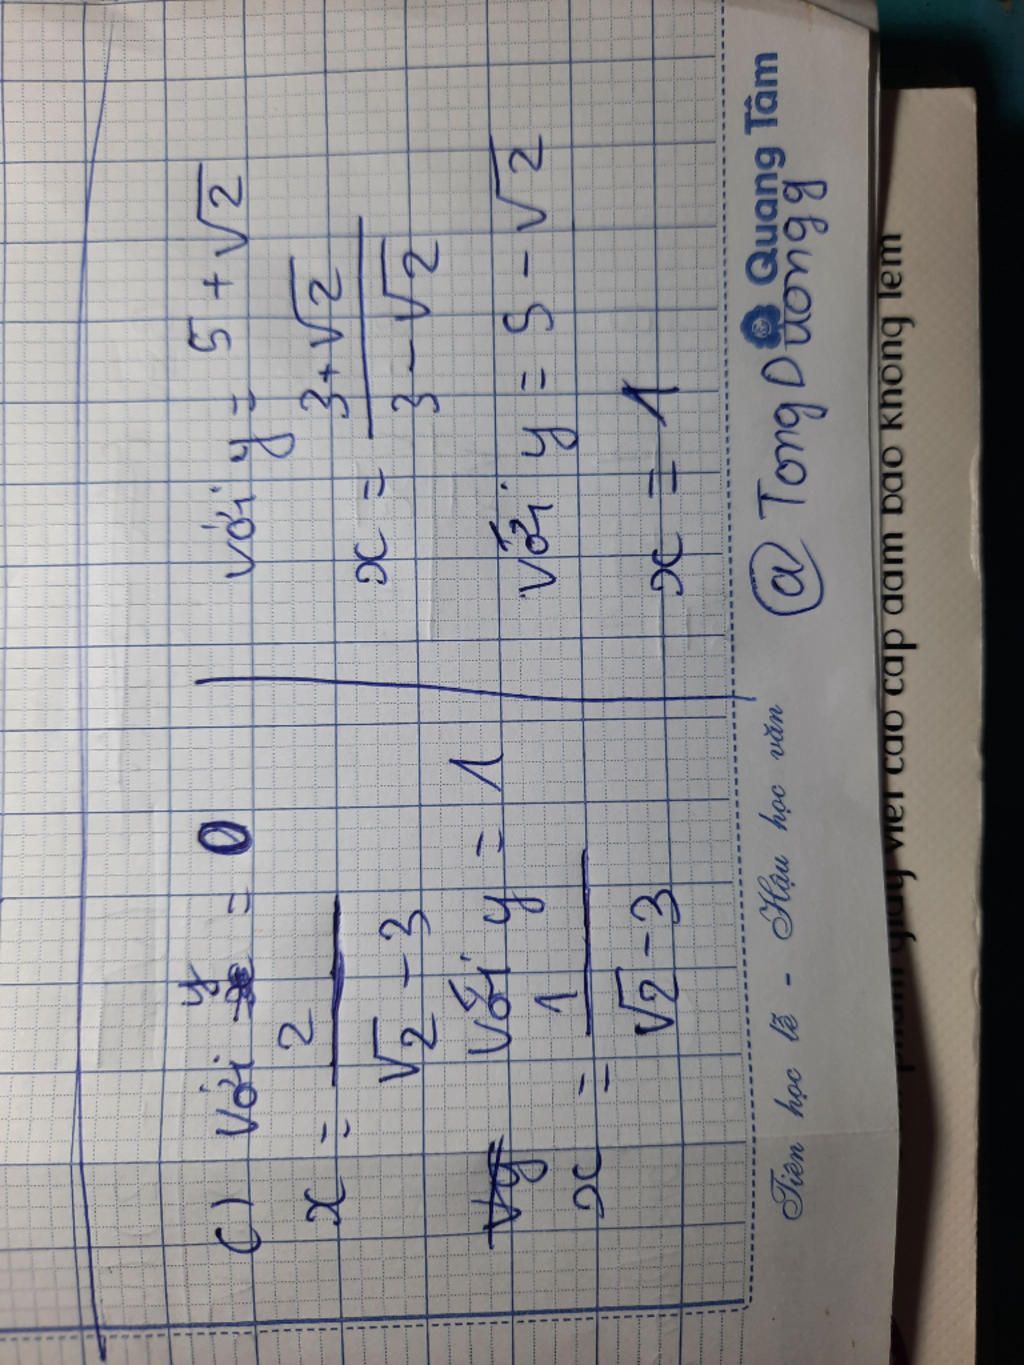 c) Với y = 0
x = 2 / √2 - 3
Với y = 1
x = 1 / √2 - 3
Với y = 5 + √2
x = 3+√2 / 3-√2
Với y = 5 - √2
x = 1
Tiên học lễ - Hậu học văn
@ Tong Duongg
Quang Tâm
viết cao cấp đảm bảo không lem